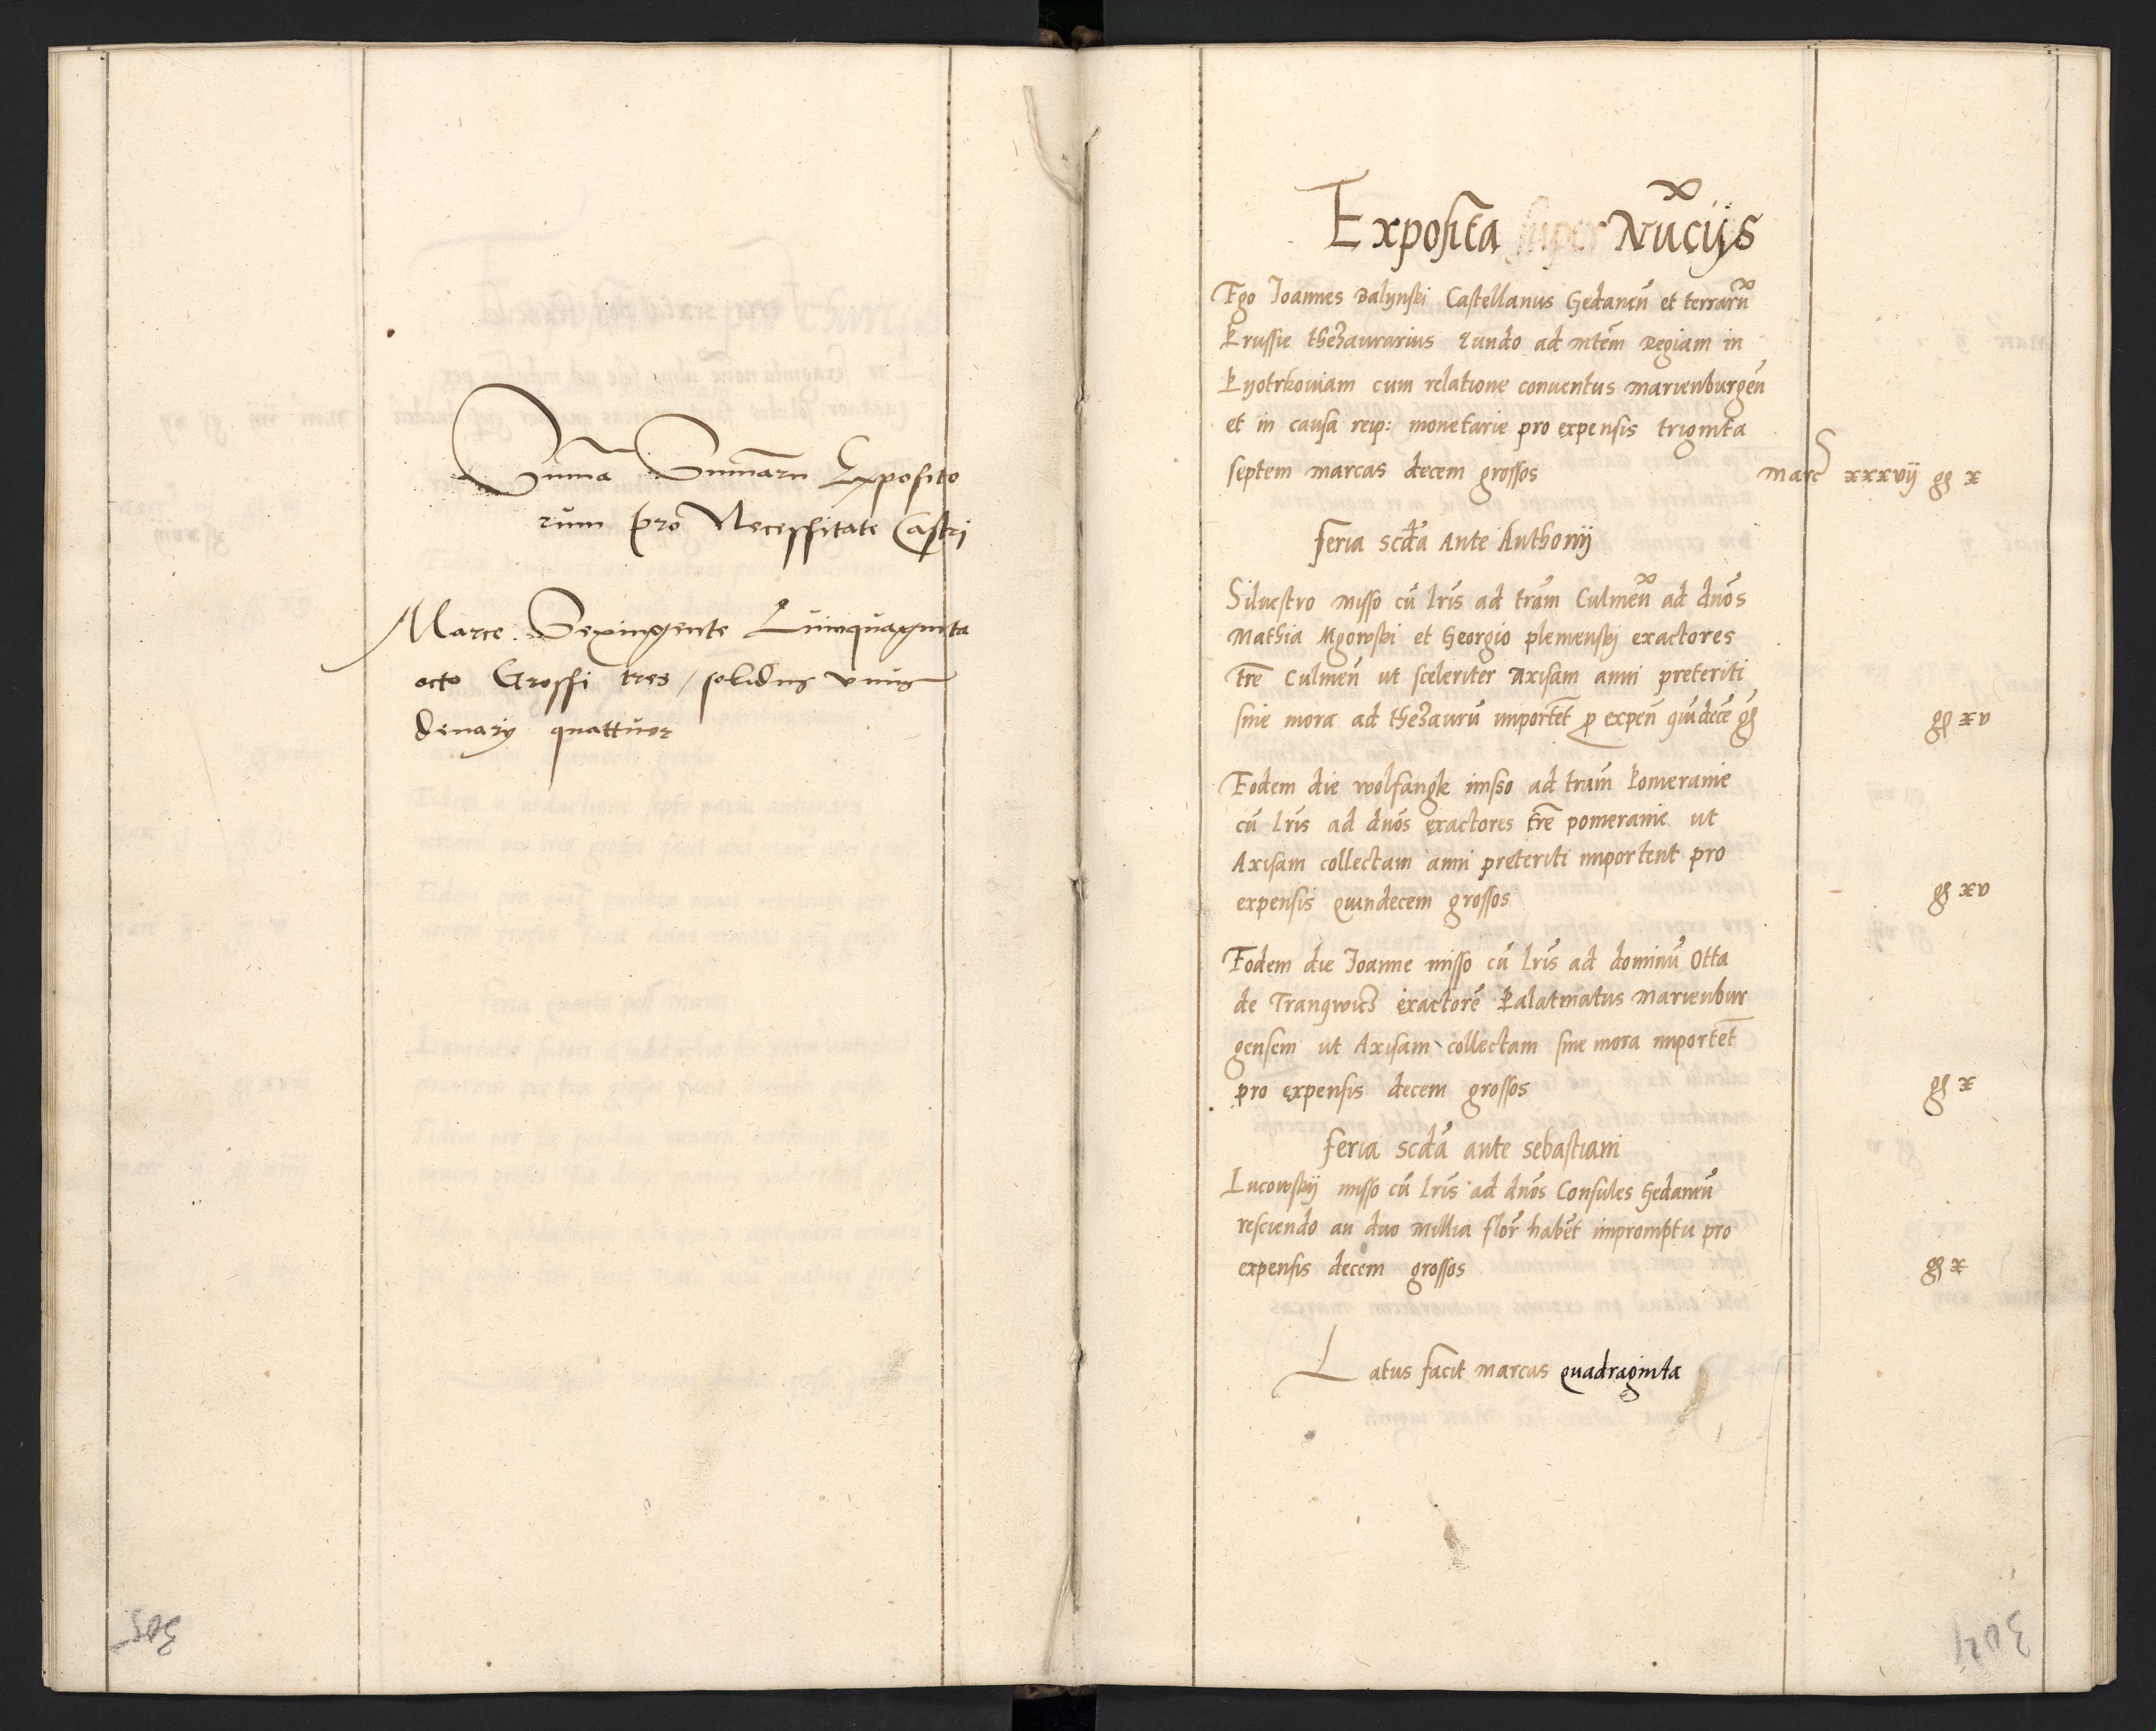 Sum̃a Sum̃arũ Exposito
rum pro Necessitate Castri
Marce Sexingente Quinquaginta
octo Grossi tres / solidus vnus
denarij quattuor
305
Exposita super Nũcijs
Ego Joannes Balynski Castellanus Gedaneñ et terrarũ
Prussie thezaurarius Eundo ad mtẽm Regiam in
Pyotrkowiam cum relatione conuentus marienburgeñ
et in causa reip: monetarie pro expensis triginta
septem marcas decem grossos
marc xxxvij gß x
feria scďa Ante Anthonij
Siluestro misso cũ lr̃is ad tr̃am Culmeñ ad dños
Mathia Mgowski et Georgio plemenskj exactores
tr̃e Culmeñ ut sceleriter Axisam anni preteriti
sine mora ad thezaurũ importẽt p expeñ quĩdecẽ gß
gß xv
Eodem die wolfangk misso ad tr̃am Pomeranie
cũ lr̃is ad dños exactores tr̃e pomeranie ut
Axisam collectam anni preteriti importent pro
expensis quindecem grossos
gß xv
Eodem die Joanne misso cũ lr̃is ad dominũ Otta
de Trangwicz exactorẽ Palatinatus Marienbur
gensem ut Axisam collectam sine mora importẽt
pro expensis decem grossos
gß x
feria scďa ante sebastiani
Lucowskij misso cũ lr̃is ad dños Consules Gedaneñ
resciendo an duo millia flor̃ habẽt impromptu pro
expensis decem grossos
gß x
Latus facit marcas quadraginta
304